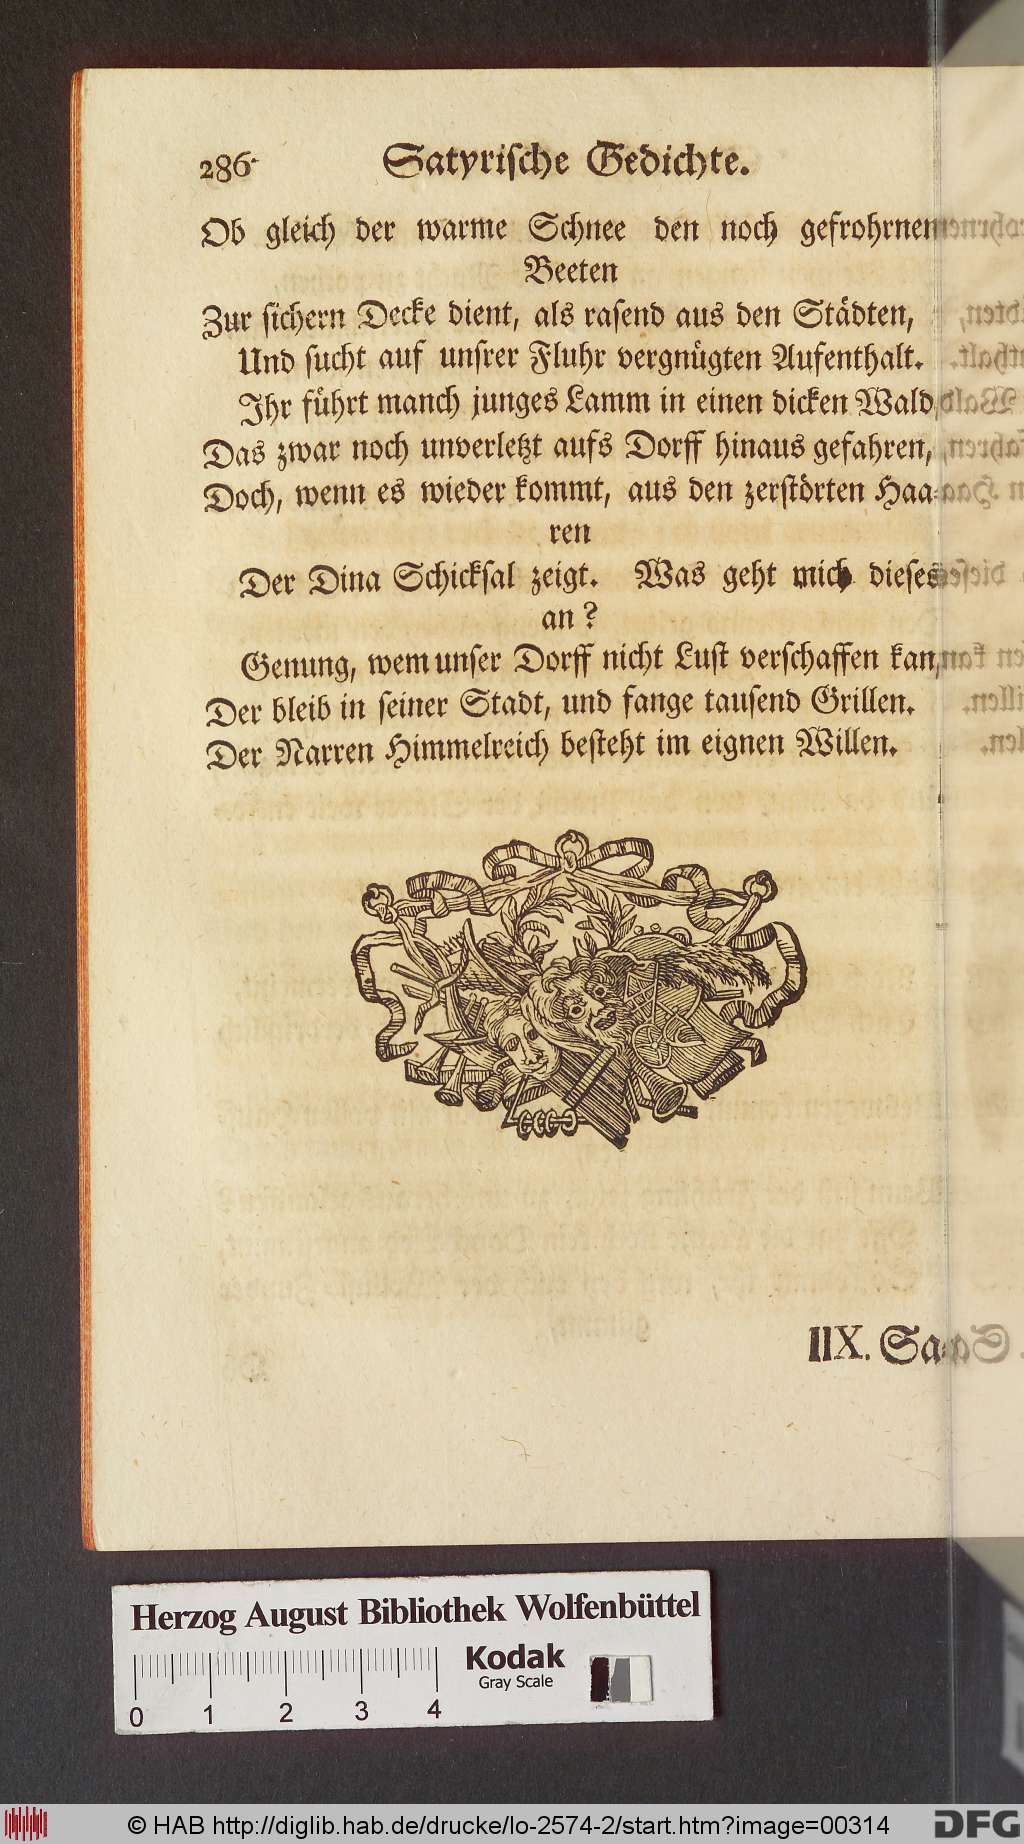 286 Satyrische Gedichte.
Ob gleich der warme Schnee den noch gefrohrnen
Beeten
Zur sichern Decke dient, als rasend aus den Städten,
Und sucht auf unsrer Fluhr vergnügten Aufenthalt.
Ihr führt manch junges Lamm in einen dicken Wald
Das zwar noch unverletzt aufs Dorff hinaus gefahren,
Doch, wenn es wieder kommt, aus den zerstörten Haa-
ren
Der Dina Schicksal zeigt. Was geht mich dieses
an?
Genung, wem unser Dorff nicht Lust verschaffen kan,
Der bleib in seiner Stadt, und fange tausend Grillen.
Der Narren Himmelreich besteht im eignen Willen.
IIX. Sa-
Herzog August Bibliothek Wolfenbüttel
Kodak
Gray Scale
0 1 2 3 4
© HAB http://diglib.hab.de/drucke/lo-2574-2/start.htm?image=00314
DFG